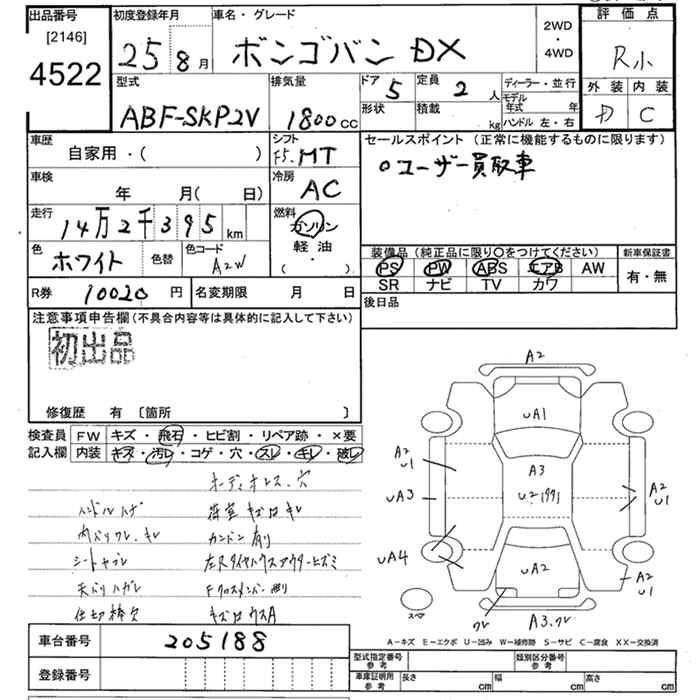 出品番号 初度登録年月 車名・グレード 2WD・4WD 評価点
[2146]
4522 25 8月 ボンゴバン DX R小
外装 内装
D C
型式 排気量 ドア 5 定員 2人 ディーラー・並行
ABF-SKP2V 1800cc 形状 積載 kg モデル年式 年
ハンドル 左・右
車歴 シフト セールスポイント (正常に機能するものに限ります)
自家用・( ) F5. MT ○ユーザー買取車
車検 冷房
年 月( 日) AC
走行 燃料
14万2千395km ガソリン
軽油・( )
色 ホワイト 色替 色コード A2W
装備品 (純正品に限り○をつけてください) 新車保証書
PS PW ABS エアB AW 有・無
SR ナビ TV カワ
R券 10020円 名変期限 月 日 後日品
注意事項申告欄(不具合内容等は具体的に記入して下さい)
初出品
修復歴 有 〔箇所 〕
検査員 FW キズ・飛石・ヒビ割・リペア跡・×要
記入欄 内装 キズ・汚レ・コゲ・穴・スレ・キレ・破レ
オーディオレス、穴
ハンドルハゲ 荷室キズ凹キレ
内バリワレ、キレ カンバン有り
シートヤブレ
天バリハガレ
仕切棒欠
車台番号 205188
登録番号
A2
UA1
A2
U1
A3
UA3 U2 1991 A2
U1
UA4
UA2 A2
U1
スペア ワレ A3.ワレ
A-キズ E-エクボ U-凹み W-補修跡 S-サビ C-腐食 XX-交換済
型式指定番号 参考 類別区分番号 参考
車庫証明用 参考 長さ cm 幅 cm 高さ cm